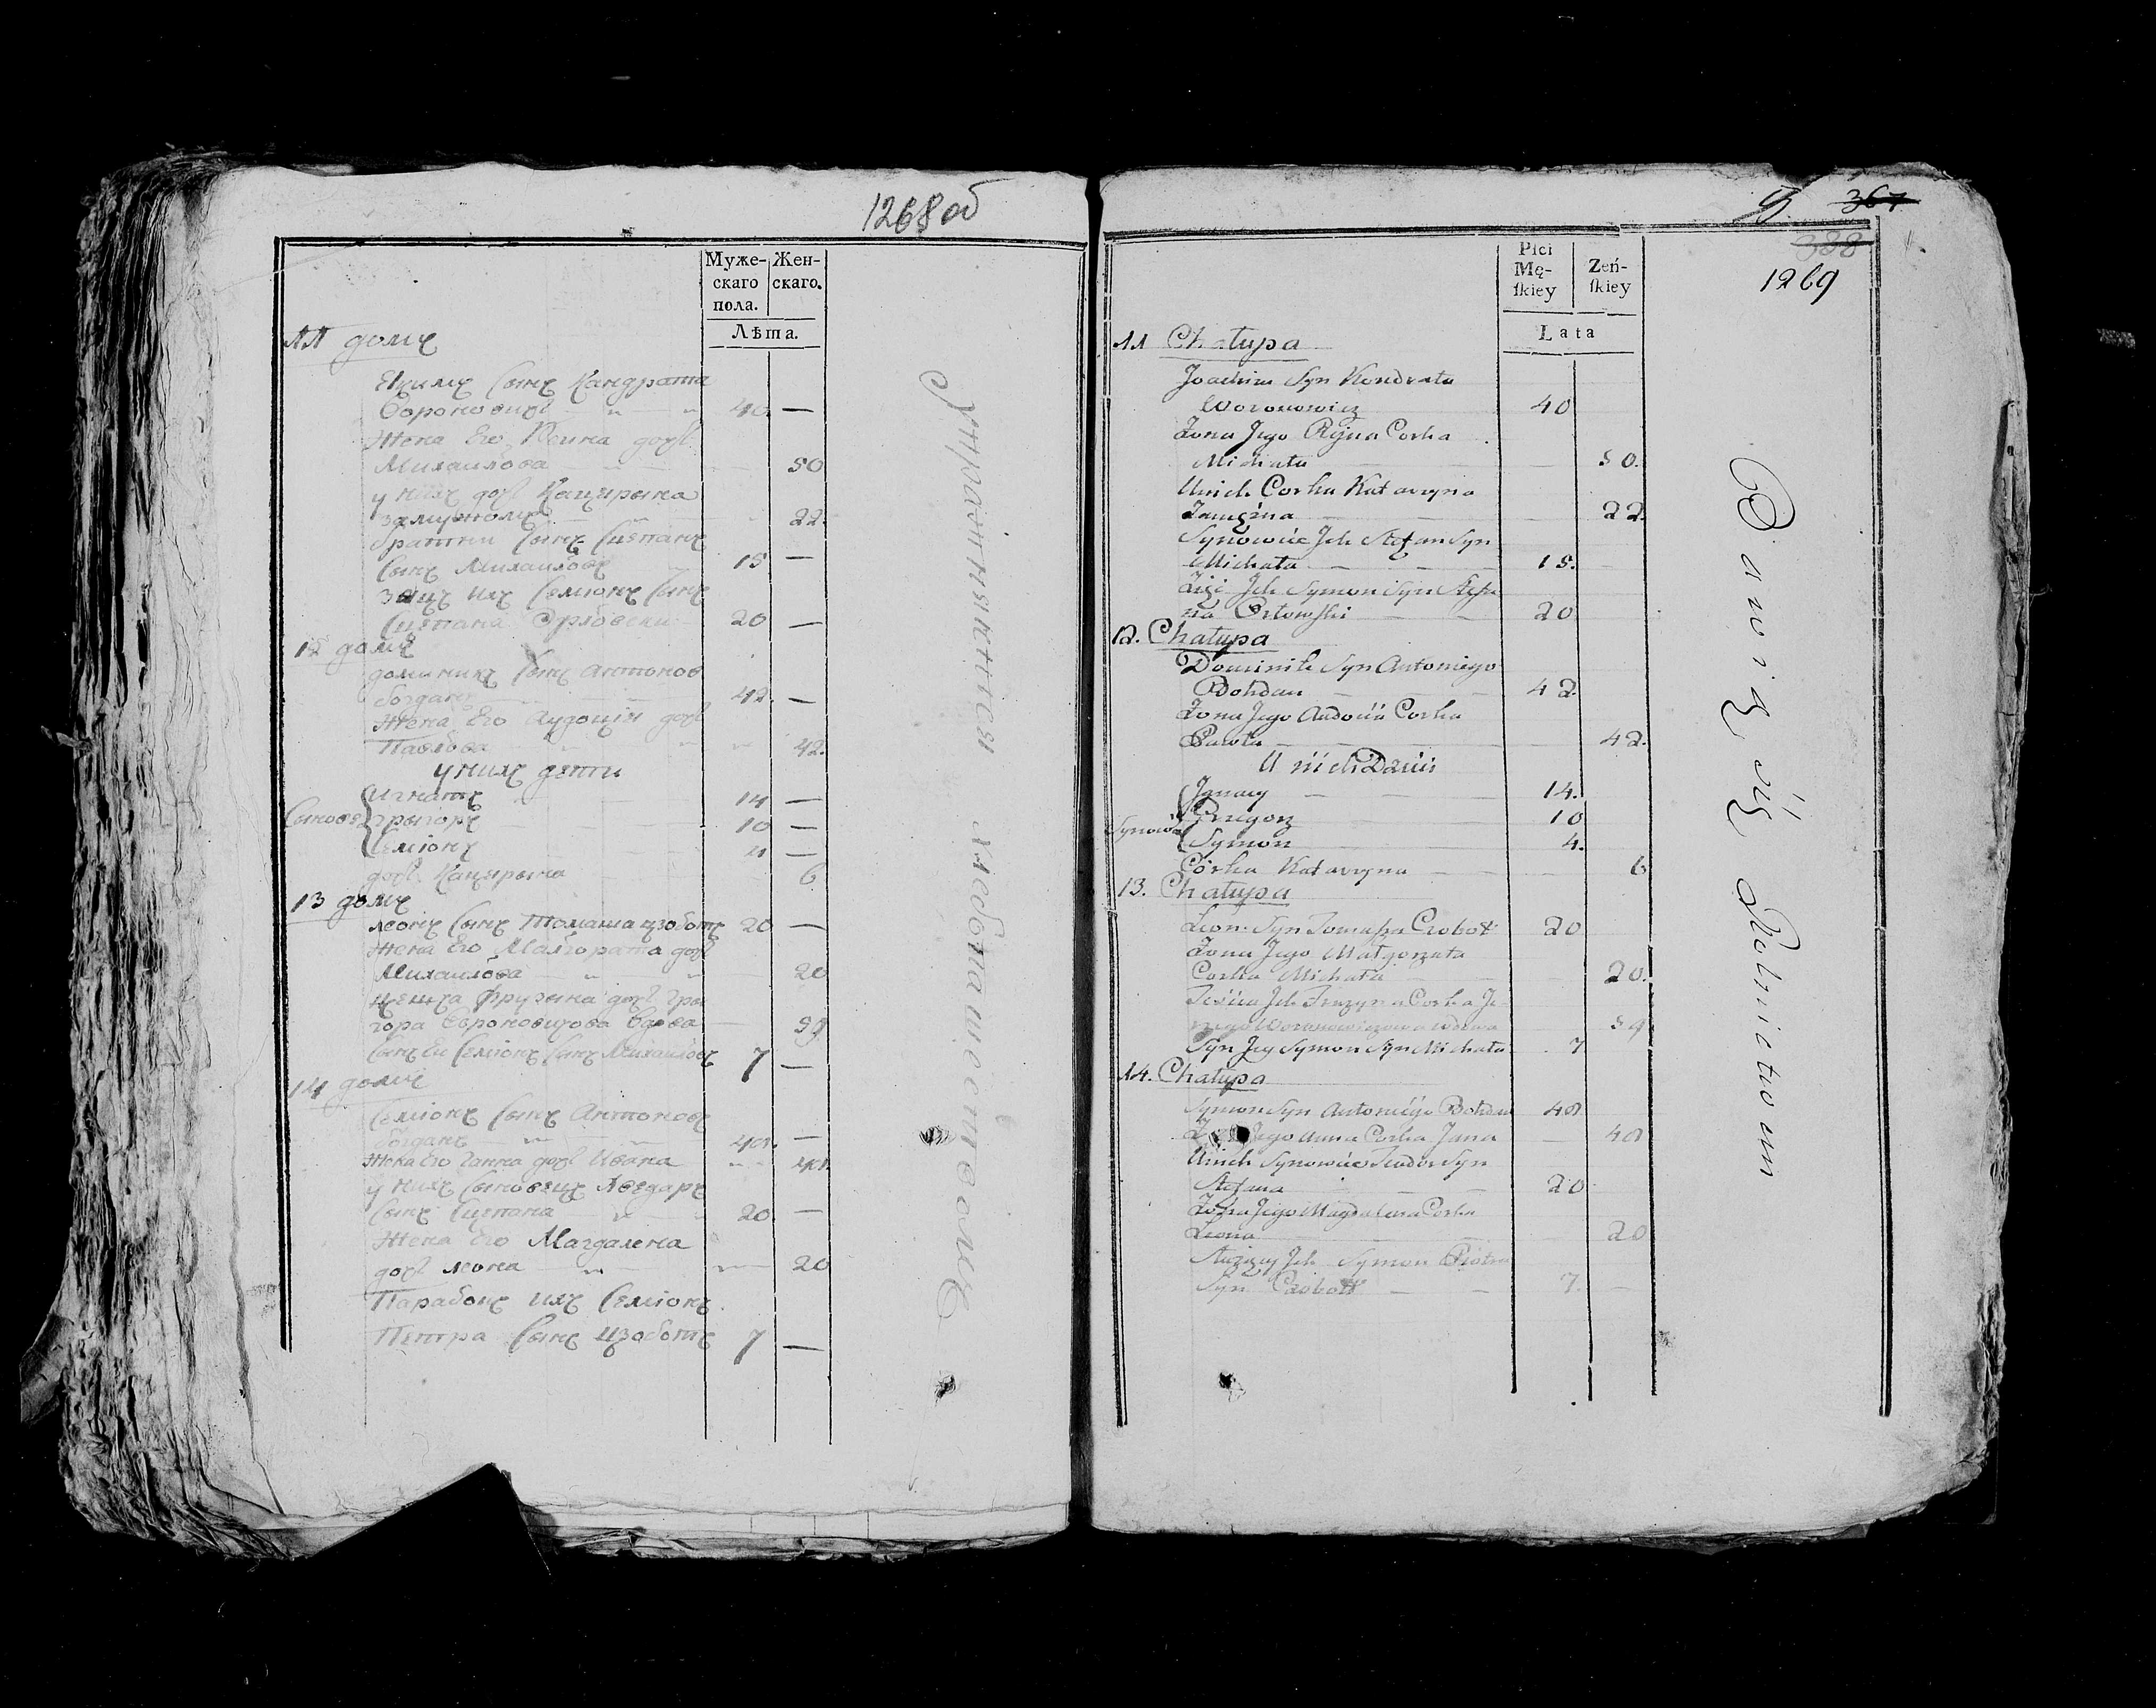 1268 об
Муже-
скаго
пола.
Жен-
скаго.
Лѣта.
11 домъ
Екимъ сынъ Кандрата
Вороновичъ 40. —
Жена Его Реина дочь
Михаилова 50
у нихъ доч Кацярына
замужомъ 22.
братни сынъ Сцепанъ
сынъ Михаиловъ 15 —
зяць ихъ Семіонъ сынъ
Сцепана Орловски 20 —
12 домъ
доминикъ сынъ Антонов
богданъ 42. —
Жена Его Аудоція доч
Павлова 42.
у нихъ дети
Игнатъ 14 —
Синове Грыгоръ 10 —
Семіонъ 4 —
доч. Кацярына 6
13 домъ
леонъ сынъ Томаша цзоботъ 20 —
Жена Его Малгората доч
Михаилова 20
цешча Фрузына доч Гры
гора Вороновичова вдова 59
сынъ Еи Семіонъ сынъ Михаиловъ 7 —
14 домъ
Семіонъ сынъ Антоновъ
богданъ 40. —
Жена Его Ганна доч Ивана 40.
у нихъ сыновецъ Хведаръ
сынъ Сцепана 20. —
Жена Его Магдалена
доч леона 20
Парабокъ ихъ Семіонъ
Петра сынъ цзоботъ 7 —
с утраминянимися хлебташеством
5 367
388
1269
Płci
Mę-
ſkiey
Żeń-
ſkiey
Lata
11 Chałupa
Joachim Syn Kondrata
Woronowicz 40
Żona Jego Rejna Corka
Michała 50.
U nich Corka Katarzyna
Zamężna 22.
Synowiec Jch Stefan Syn
Michała 15.
Zięć Jch Symon Syn Stefa
na Orłowski 20
12. Chałupa
Dominik Syn Antoniego
Bohdan 42
Żona Jego Audocia Corka
Pawła 42.
U nich Dzieci
Jgnacy 14.
Synowie Grzegorz 10
Symon 4.
Córka Katarzyna 6
13. Chałupa
Leon Syn Tomasza Czobot 20
Żona Jego Małgorzata
Corka Michała 20.
Teścia Jch Fruzyna Corka Je
rzego Woronowiczowa wdowa 59
Syn Jey Symon Syn Michała 7
14. Chałupa
Symon Syn Antoniego Bohdan 40
Jego Anna Corka Jana 40
U nich Synowiec Teodor Syn
Stefana 20
Żona Jego Magdalena Corka
Leona 20
Służący Jch Symon Piotra
Syn Czobott 7.